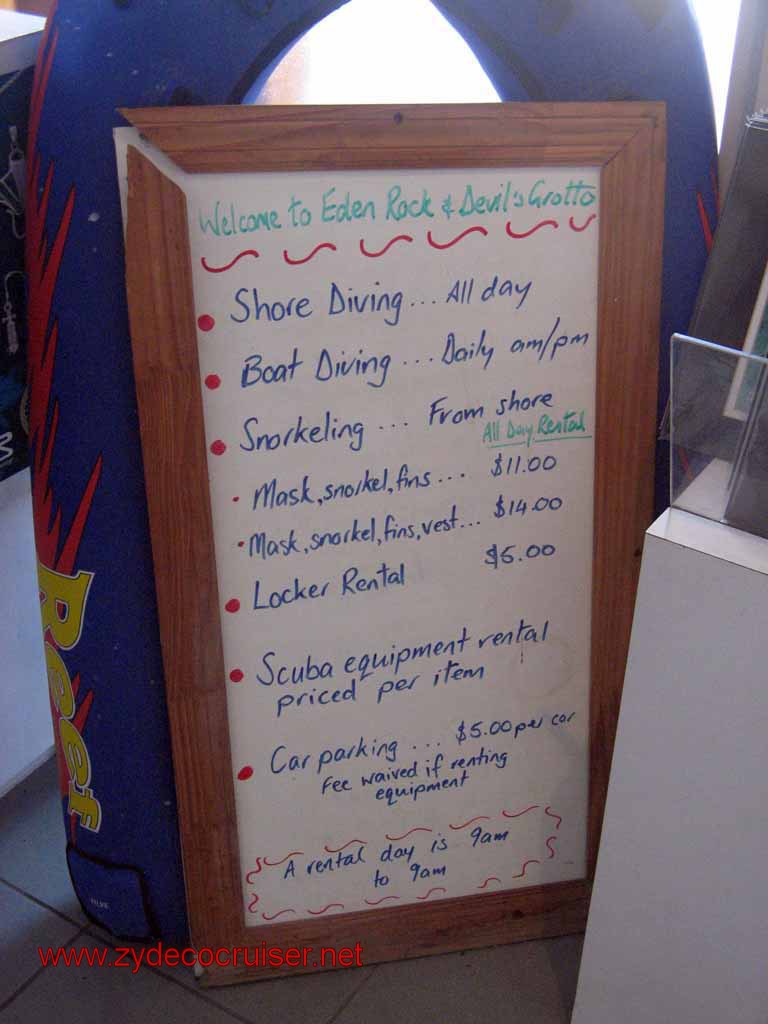 Welcome to Eden Rock & Devil's Grotto
Shore Diving... All day
Boat Diving ... Daily am/pm
Snorkeling ... From shore
All Day Rental
Mask, snorkel, fins... $11.00
Mask, snorkel, fins, vest... $14.00
Locker Rental $5.00
Scuba equipment rental
priced per item
Car parking ... $5.00 per car
Fee waived if renting
equipment
A rental day is 9am
to 9am
Reef
www.zydecocruiser.net